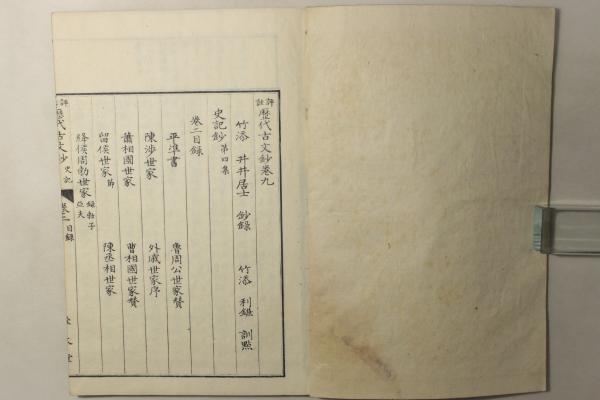 評註歷代古文鈔卷九
竹添井井居士鈔錄 竹添利鎌訓點
史記鈔第四集
卷二目録
平準書 魯周公世家贊
陳渉世家 外戚世家序
蕭相國世家 曹相國世家贊
留侯世家節 陳丞相世家
絳侯周勃世家錄勃子亞夫
評註歷代古文鈔 史記 卷二目録